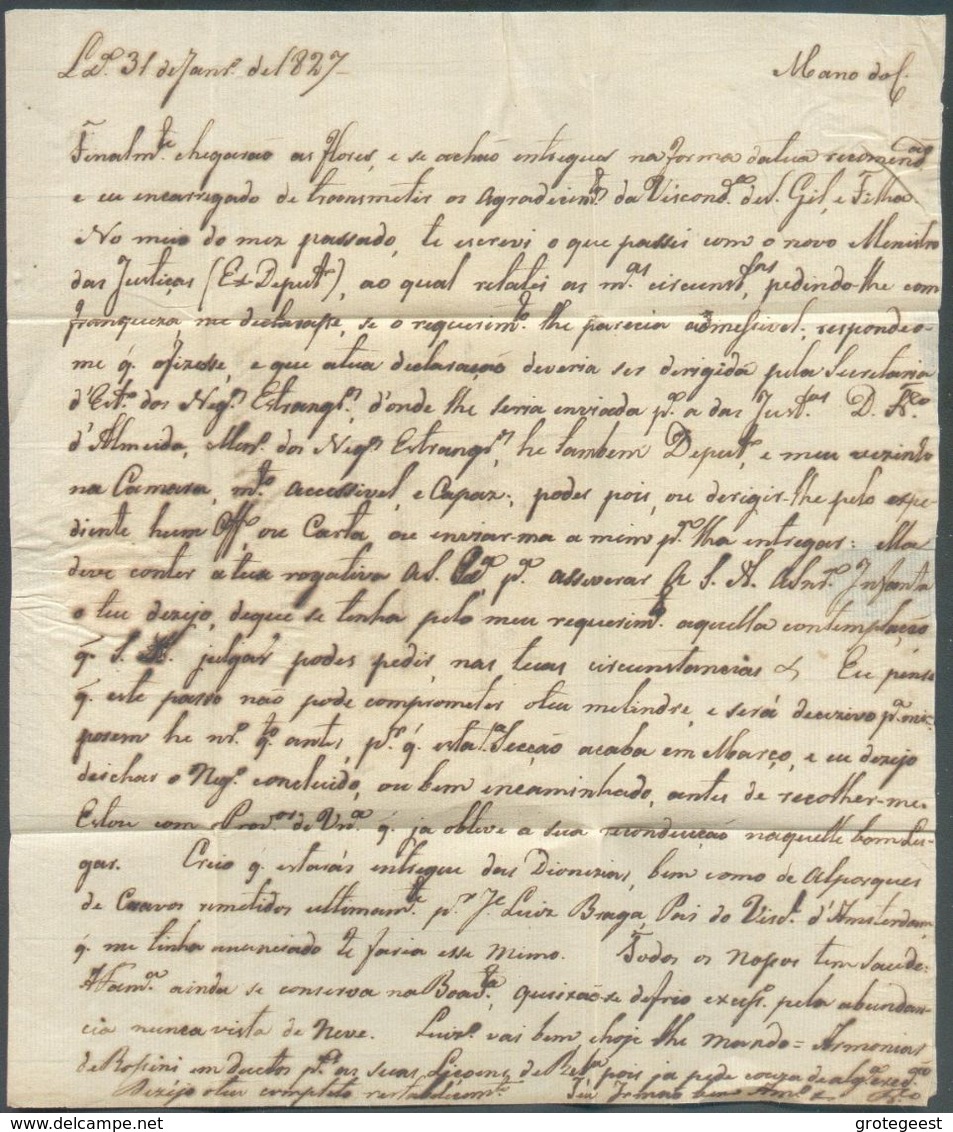 Lxª. 31 de Janrº. de 1827 Mano do C.
Finalmte. chegarão as flores, e se achão entregues na forma da tua recomendção
e eu encarregado de transmetir os agradecimtos. da Viscondª. de S. Gil, e Filha.
No meio do mez passado, te escrevi o que passei com o novo Menistro
das Justiças (Ex-Deputº.), ao qual relatei as mas. circunstas., pedindo-lhe com
franqueza me declarasse, se o requerimto. lhe parecia admessivel; respondeo-
me q. o fizesse, e que a tua declaração deveria ser derigida pela Secretaria
d'Estº. dos Negºs. Estrangrs. d'onde lhe seria enviada pª. a das Justas. D. Frco.
d'Almeida, Menº. dos Negºs Estrangrs, he tambem Deputº, e meu vezinho
na Camara, mto. accessivel, e capaz; podes pois, ou derigir-lhe pelo expe-
diente hum Offº, ou Carta, ou enviar-ma a mim pª. lha entregar: ella
deve conter a tua rogativa a S. Exª. pª. asseverar a S. A. a Snrª. Infanta
o teu dezejo, de que se tenha pelo meu requerimto. aquella contemplação
q. S. A. julgar podes pedir nas tuas circunstancias & Eu penso
q. este passo não pode comprometer o teu melindre, e será decezivo pª. mim;
porem he nrº. qto. antes, pr. q. esta Secção acaba em Março, e eu dezejo
deichar o Negº. concluido, ou bem encaminhado, antes de recolher-me.
Estou com Provors. de Vnª. q. ja obteve a sua recondução naquelle bom Lu-
gar. Creio q. estarás entregue das Dionezias, bem como de Alporques
de Cravos remetidos ultimamte. pr. Je. Luiz Braga, Pai do Viscl. d'Amsterdam,
q. me tinha anunciado te faria esse mimo. Todos os nossos tem saude:
A Famª. ainda se conserva na Boavta, queixão-se de frio excesº. pela abundan-
cia nunca vista de Neve. vai bem e hoje lhe mando = Armonias
de Rossini em duetos pª. as suas Liçoens de Rbca, pois ja pede couza de algª. exção.
Dezejo o teu completo restabelecimto. Teu Irmão bem Amº. &